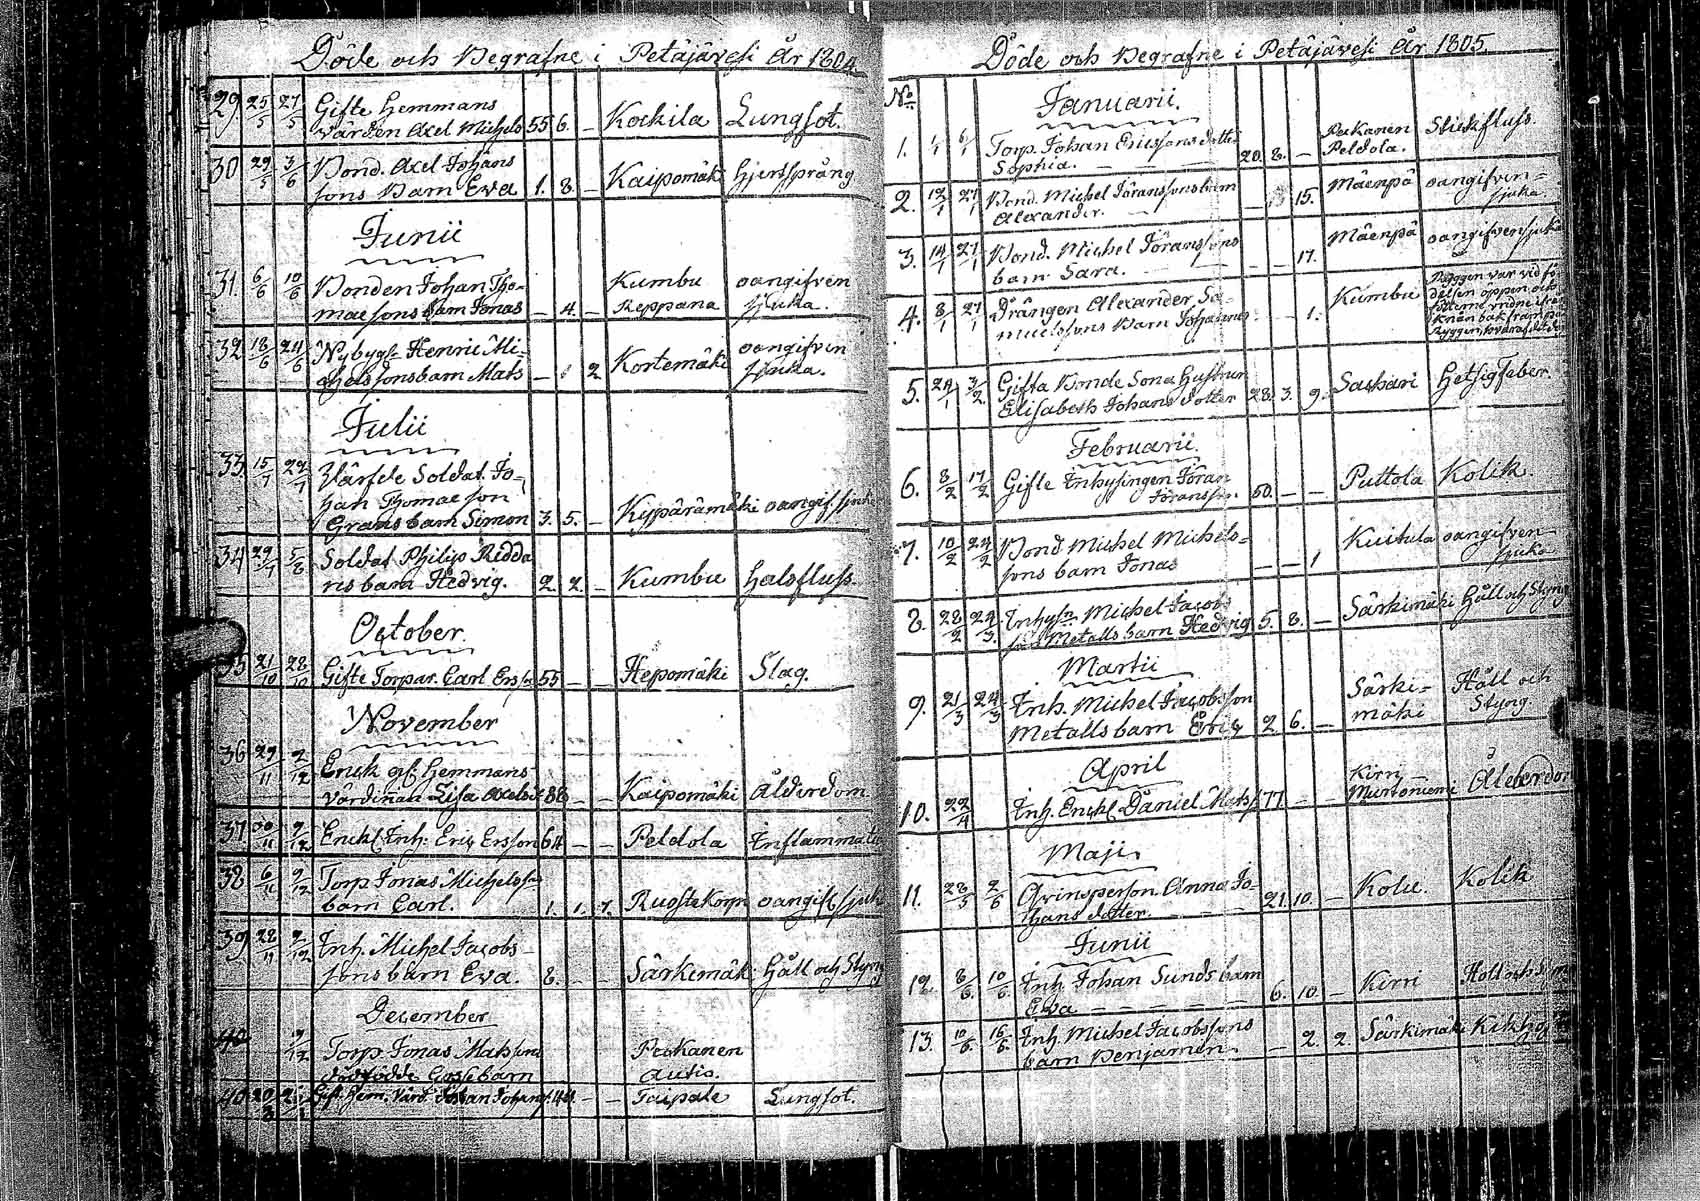 Döde och Begrafne i Petäjävesi År 1804
29. 25/5 27/5 Gifte Hemmans
värden Axel Michels 55 6. – Kockila Lungsot.
30 29/5 3/6 Bond. Axel Johans
sons Barn Eva 1. 8. – Kaipomäki hjertsprång
Junii
31. 6/6 10/6 Bonden Johan Tho- Kumbu oangifven
mae sons barn Jonas – 4. – Reppana sjuka.
32. 18/6 24/6 Nybygg. Henric Mi- oangifven
chels sons barn Mats – 1 2 Kortemäki sjuka.
Julii
33. 15/7 22/7 Värfde Soldat. Jo-
han Thomae son
Grans barn Simon 3. 5. – Kypärämäki oangif. sjuka
34 29/7 5/8 Soldat Philip Redda
ris barn Hedvig. 2. 2. – Kumbu halsfluss.
October.
35 21/10 28/10 Gifte Torpar. Carl Ersson 55 – – Hepomäki Slag.
November
36 29/11 2/12 Enck. gl. Hemmans-
värdinan Lisa Axelsd. 86 – – Kaipomäki Ålderdom
37 30/11 9/12 Enckl. Inh. Eric Ersson 64 – – Peldola Inflammation
38 6/11 9/12 Torp Jonas Michelsson
barn Carl. 1. 1. 7. Ruostekorpi oangif. sjuk
39 28/11 9/12 Inh. Michel Jacobs-
sons barn Eva. 8. – Särkimäki Håll och Styng
December
40 9/12 Torp. Jonas Matssons Peckanen
dödfödde barn Autis.
40 20/2 Gift. Hem. Värd. Johan Johans. 44. – – Taipale Lungsot.
Döde och Begrafne i Petäjävesi År 1805.
No
Januarii.
1. 1/1 6/1 Torp. Johan Ericssons dotter Peckanen Stickfluss.
Sophia. – 20. 8. – Peldola.
2. 12/1 27/1 Bond. Michel Göranssons barn – 15. Mäenpä oangifven-
Alexander. – sjuka
3. 14/1 27/1 Bond. Michel Göranssons Mäenpä oangifven sjuka
barn Sara. – – – – 17.
4. 8/1 27/1 Drängen Alexander Sa- Kumbu Ryggen var vid fö-
muelssons Barn Johannes – – 1. delsen öppen och
fötterne vridne ifrån
knän bak fram på
Ryggen,
5. 24/1 3/2 Gifta Bonde Sona Hustrun
Elisabeth Johans dotter 28. 3. 9. Saskari Hetsigfeber
Februarii.
6. 8/2 17/2 Gifte Inhysingen Göran
Göransson. 60. – – Puttola Kolik.
7. 10/2 24/2 Bond Michel Michels-
sons barn Jonas – – 1 Kuitula oangifven-
sjuka
8. 28/2 24/3. Inhys. Michel Jacobs
son Metalls barn Hedvig 5. 8. – Särkimäki Håll och Styng
Martii
9. 21/3 24/3 Inh. Michel Jacobsson Särki= Håll och
Metalls barn Eric 2. 6. – mäki Styng.
April
10. 22/4 Inh. Enckl. Daniel Mats. 77. – Kirri Murtoniemi Ålderdom
Maji
11. 28/5 2/6 Qvinsperson Anna Jo-
hans dotter. – – – 21. 10. – Kolu. Kolik
Junii
12. 8/6. 10/6. Inh Johan Sunds barn
Eva – – – – 6. 10. – Kirri Håll och Styng
13. 10/6. 16/6. Inh. Michel Jacobssons
barn Benjamin. – 2. 2 Särkimäki Kikhosta